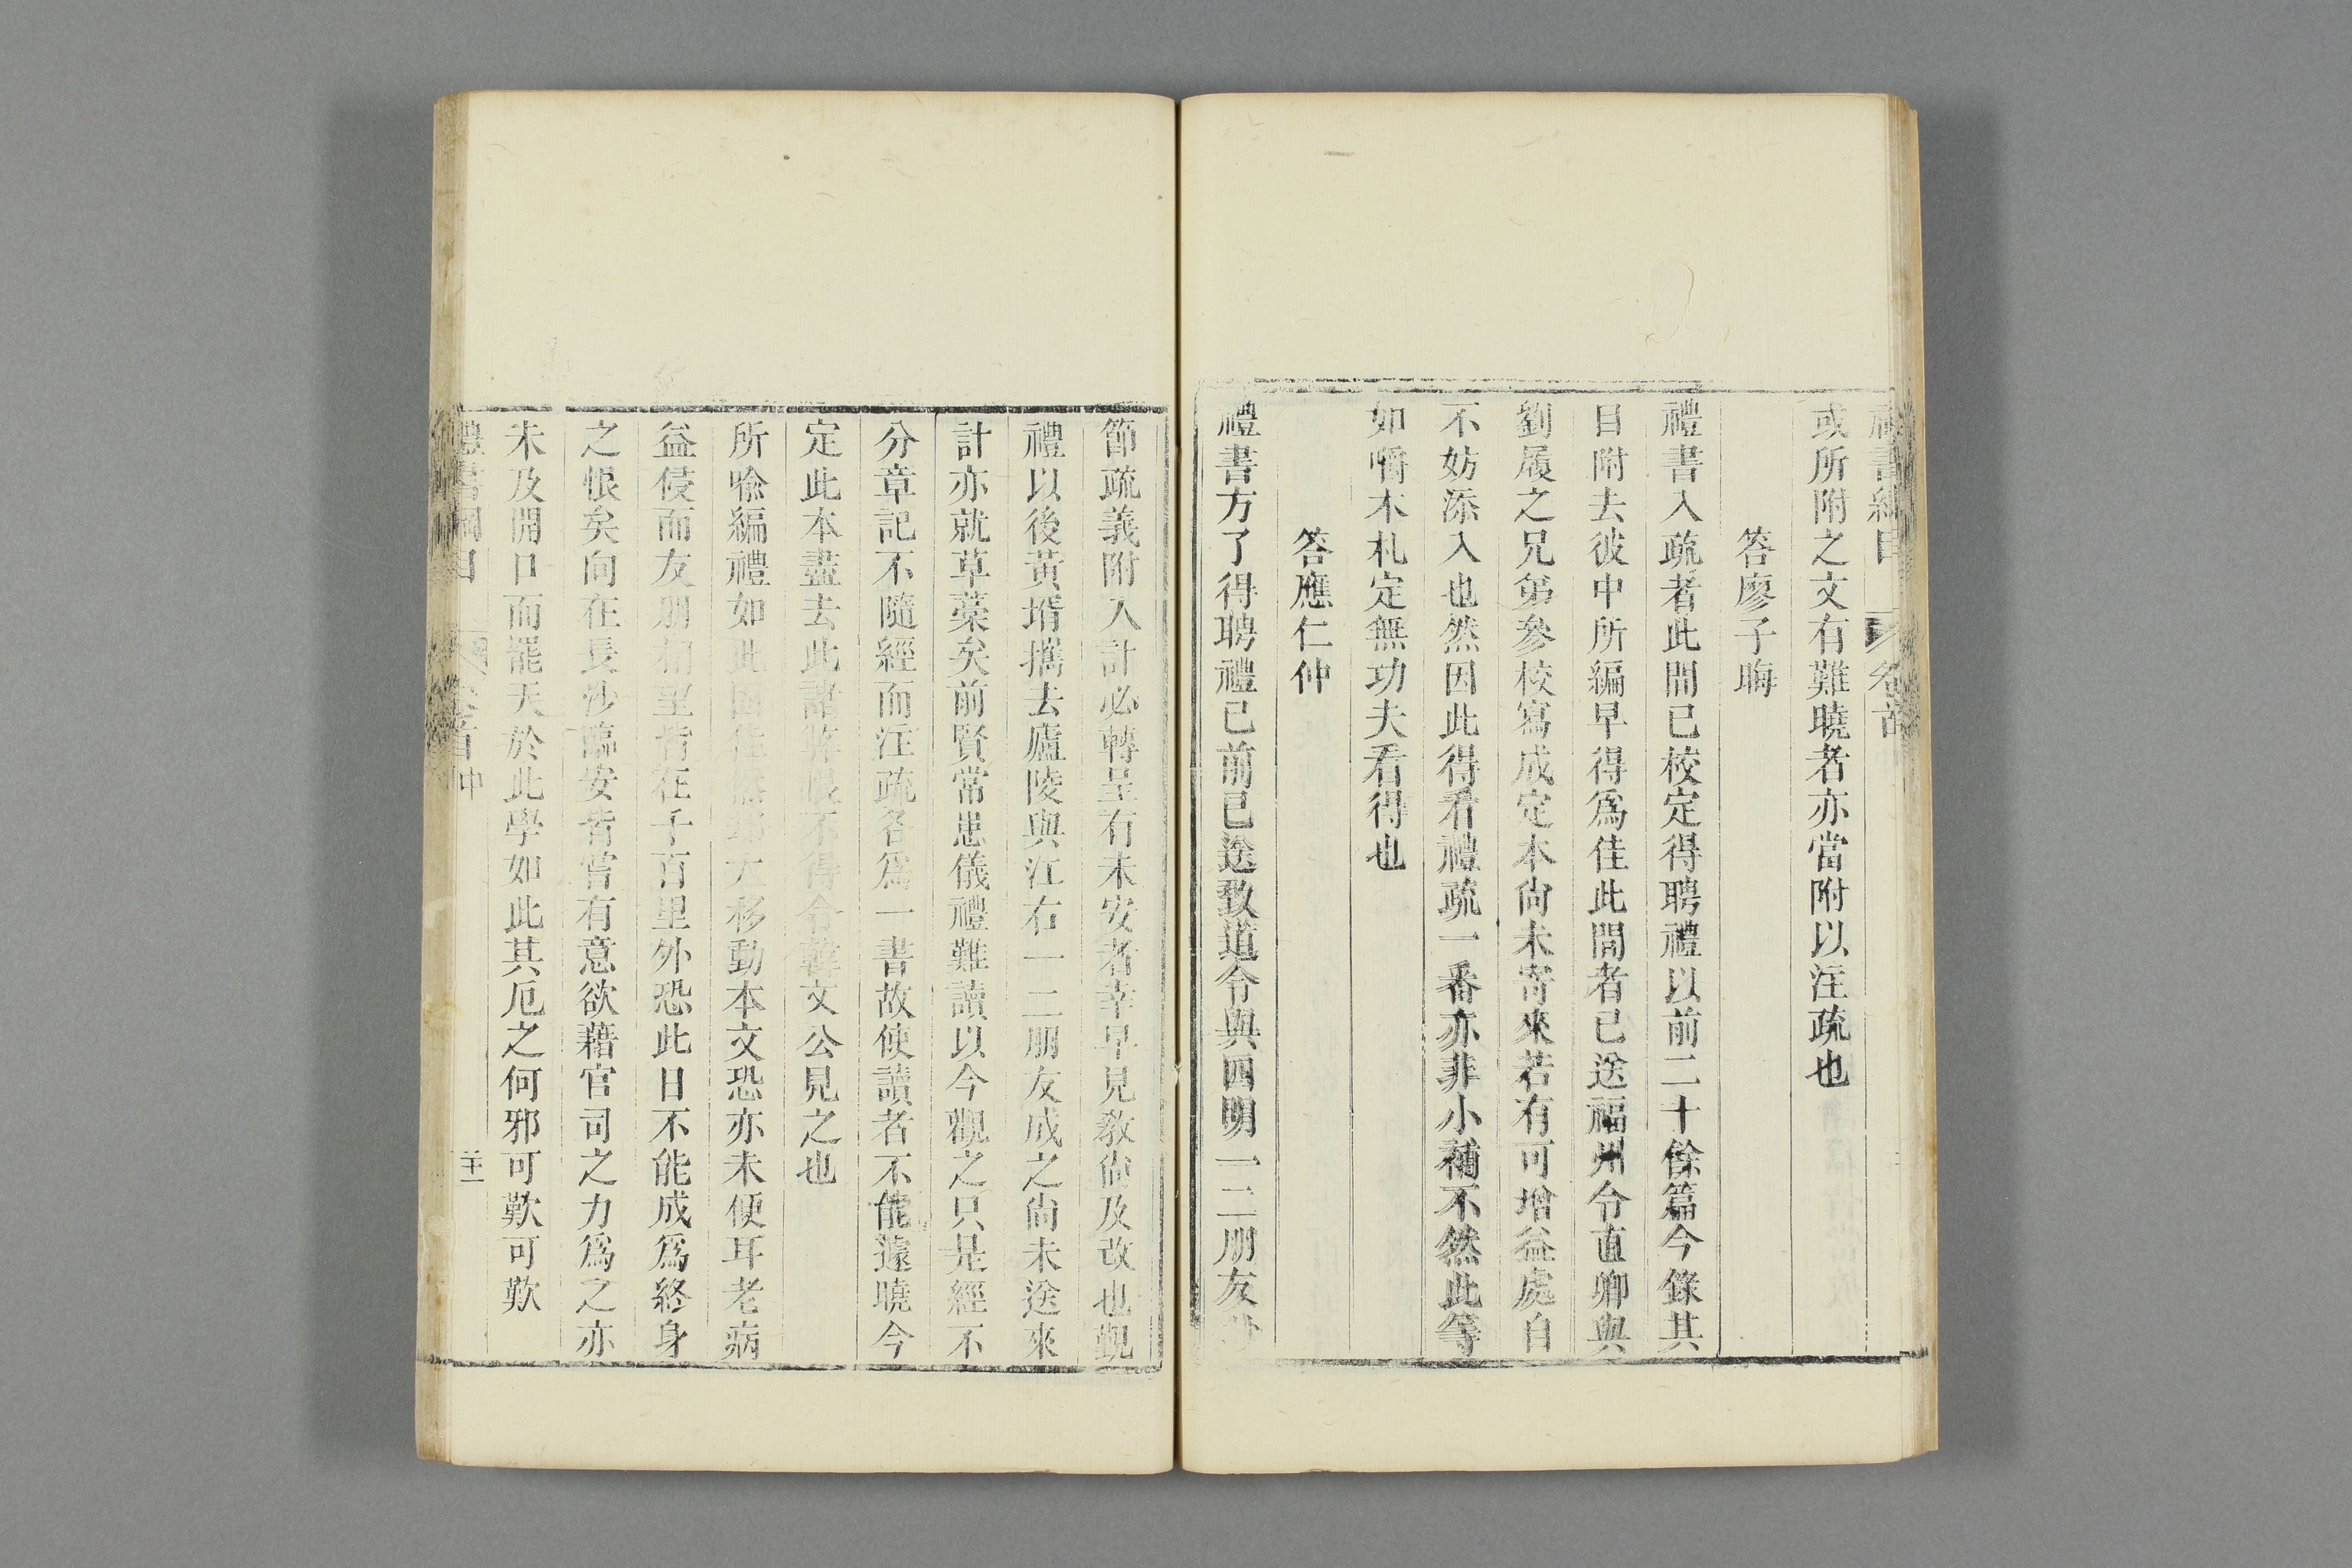 禮書綱目 卷首
或所附之文有難曉者亦當附以注疏也
答廖子晦
禮書入疏者此間已校定得聘禮以前二十餘篇今錄其
目附去彼中所編早得爲佳此間者已送福州令直卿與
劉履之兄弟參校寫成定本尙未寄來若有可增益處自
不妨添入也然因此得看禮疏一番亦非小補不然此等
如嚼木札定無功夫看得也
答應仁仲
禮書方了得聘禮已前已送致道令與四明一二朋友
節疏義附入計必轉呈有未安者幸早見教尙及改也覲
禮以後黃壻攜去廬陵與江右一二朋友成之尙未送來
計亦就草藁矣前賢常患儀禮難讀以今觀之只是經不
分章記不隨經而注疏各爲一書故使讀者不能遽曉今
定此本盡去此諸弊恨不得令韓文公見之也
所喩編禮如此固佳然却太移動本文恐亦未便耳老病
益侵而友朋相望皆在千百里外恐此日不能成爲終身
之恨矣向在長沙臨安皆嘗有意欲藉官司之力爲之亦
未及開口而罷天於此學如此其厄之何邪可歎可歎
禮書綱目 卷首中 二十一